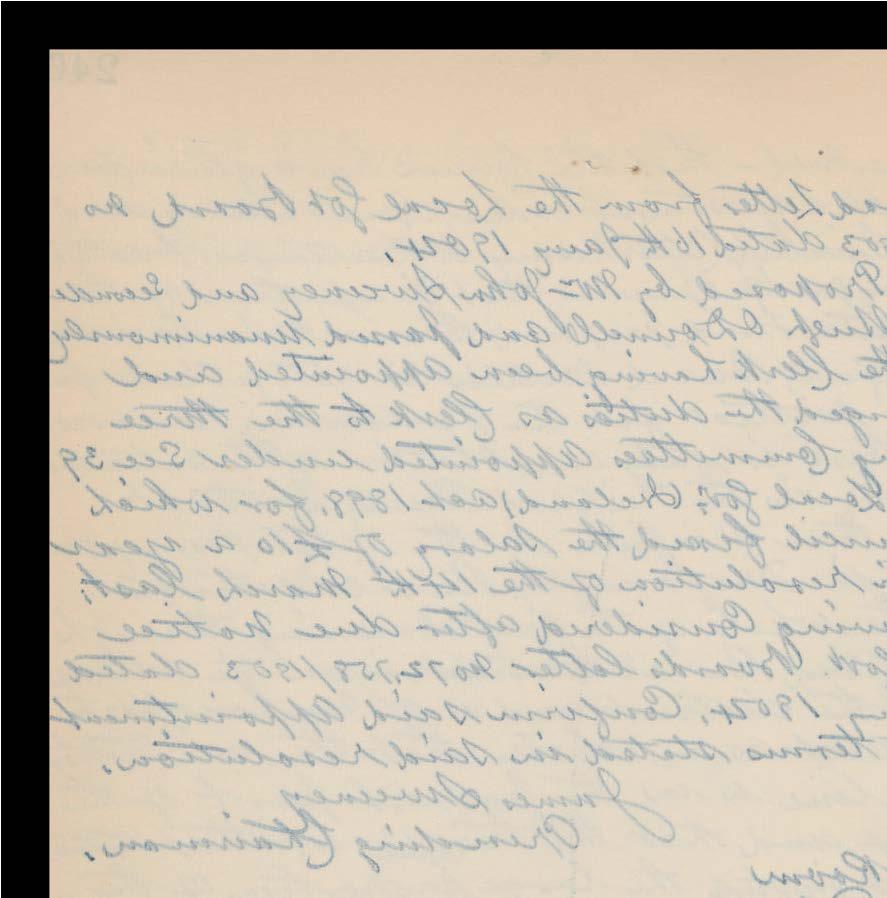 240
ad Letter from the Local Gov Board, No
503 dated 16th Jany 1904.
Proposed by Mr John Sweeney and Seconde
Hugh O'Donnell and passed unanimously
he Clerk having been appointed and
nged the duties as Clerk to the three
g Committees appointed under Sec 39
Local Gov: Ireland, Act 1898, for which
uncil fixed the Salary of £10 a year
s resolution of the 14th March last.
aving Considered after due notice
Gov. Board's letter No 72,758/1903 dated
y 1904, Confirm said appointment
terms stated in said resolution.
James Sweeney
Presiding Chairman.
Room